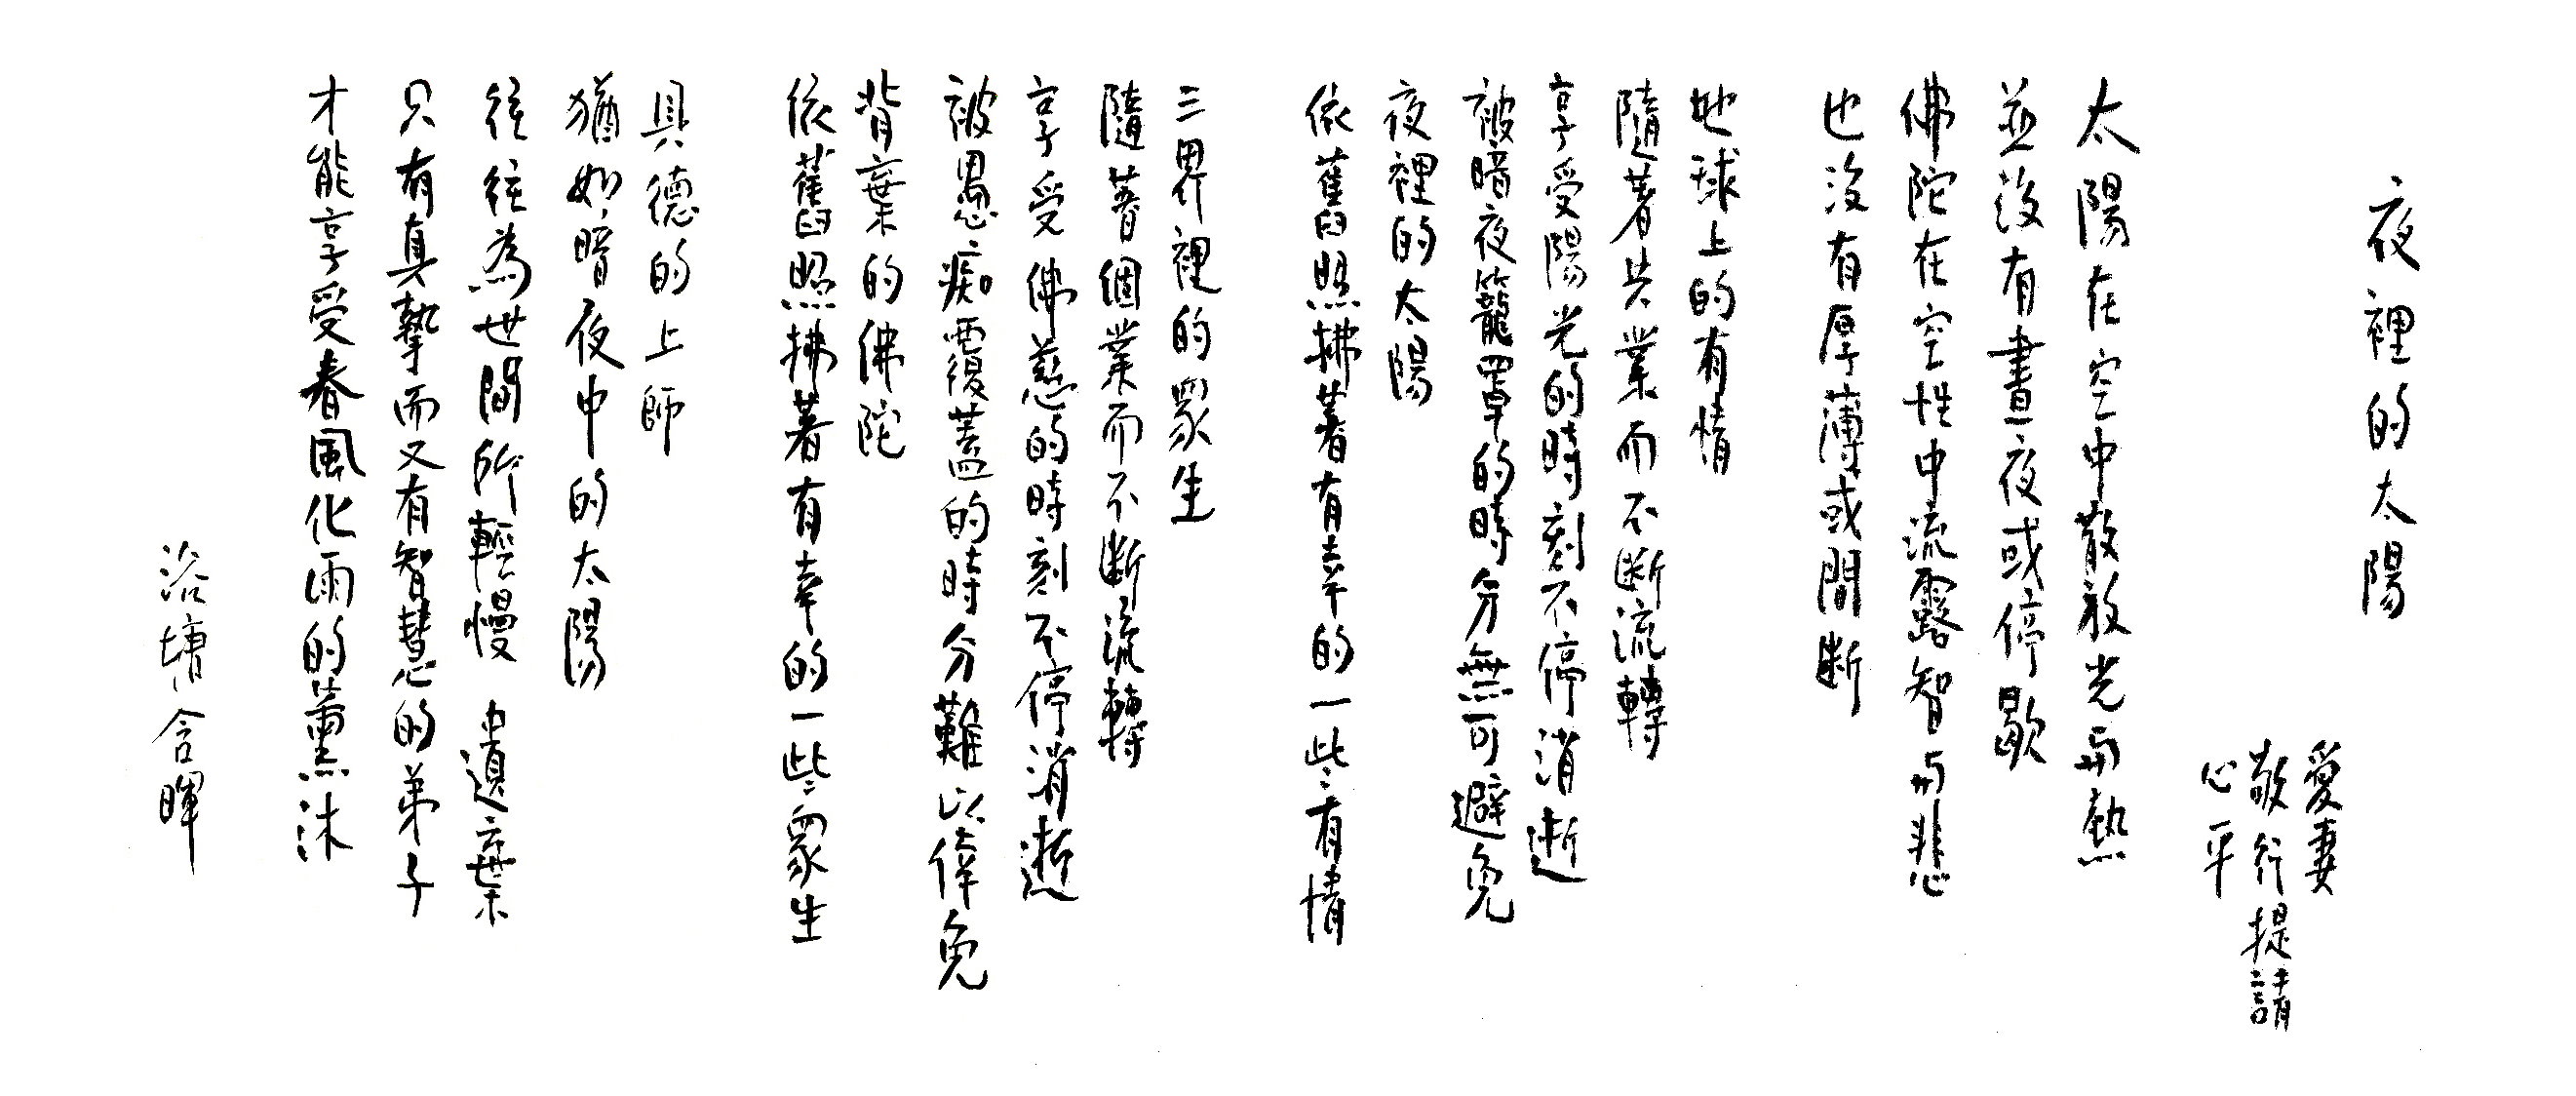 夜裡的太陽
愛妻
敬行提請
心平
太陽在空中散放光與熱
並沒有晝夜或停歇
佛陀在空性中流露智與悲
也沒有厚薄或間斷
地球上的有情
隨著共業而不斷流轉
享受陽光的時刻不停消逝
被暗夜籠罩的時分無可避免
夜裡的太陽
依舊照拂著有幸的一些有情
三界裡的眾生
隨著個業而不斷流轉
享受佛慈的時刻不停消逝
被愚痴覆蓋的時分難以倖免
背棄的佛陀
依舊照拂著有幸的一些眾生
具德的上師
猶如暗夜中的太陽
往往為世間所輕慢 遺棄
只有真摯而又有智慧的弟子
才能享受春風化雨的薰沐
浴塘含暉